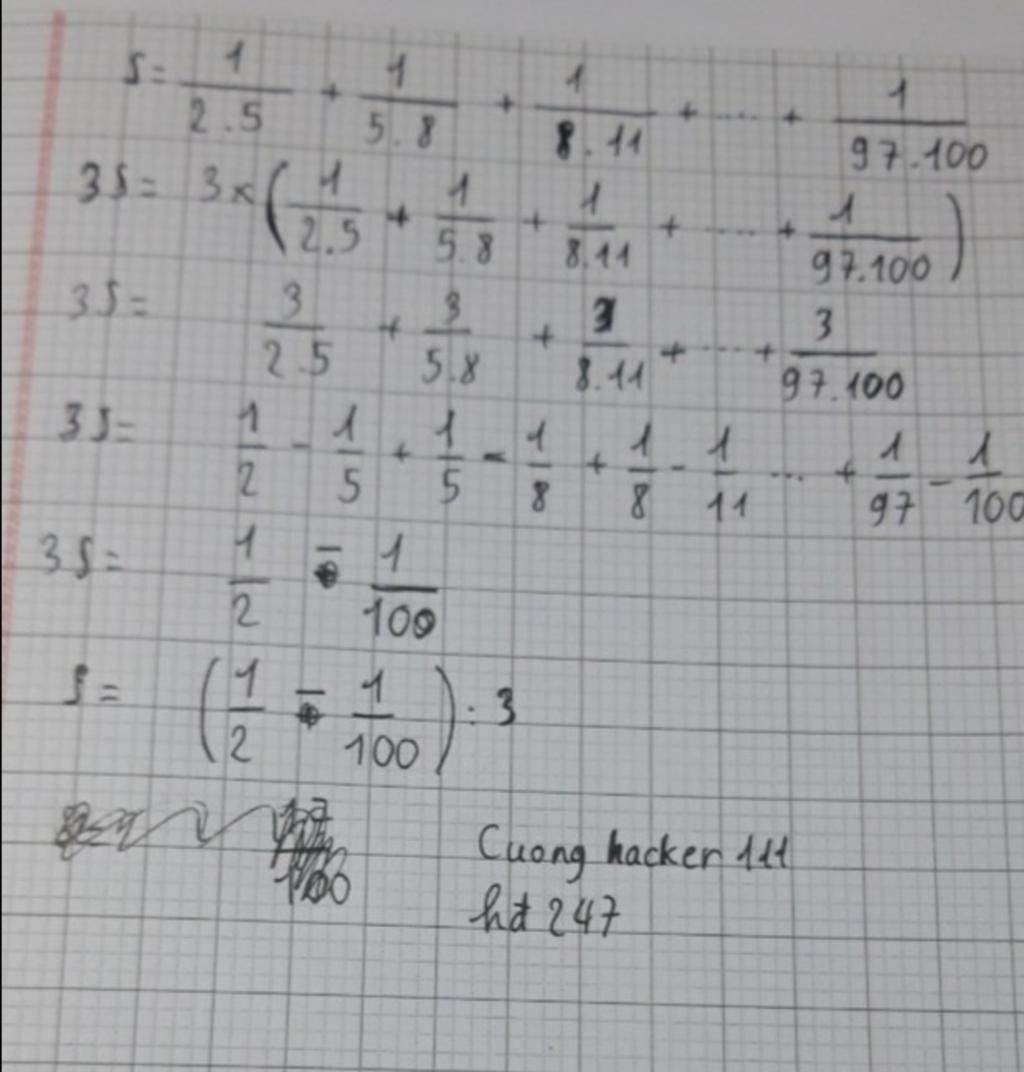 S = 1/2.5 + 1/5.8 + 1/8.11 + .... + 1/97.100
3S = 3×(1/2.5 + 1/5.8 + 1/8.11 + .... + 1/97.100)
3S = 3/2.5 + 3/5.8 + 3/8.11 + ... + 3/97.100
3S = 1/2 - 1/5 + 1/5 - 1/8 + 1/8 - 1/11 ... + 1/97 - 1/100
3S = 1/2 - 1/100
S = (1/2 - 1/100) : 3
Cuong hacker 111
hđ 247